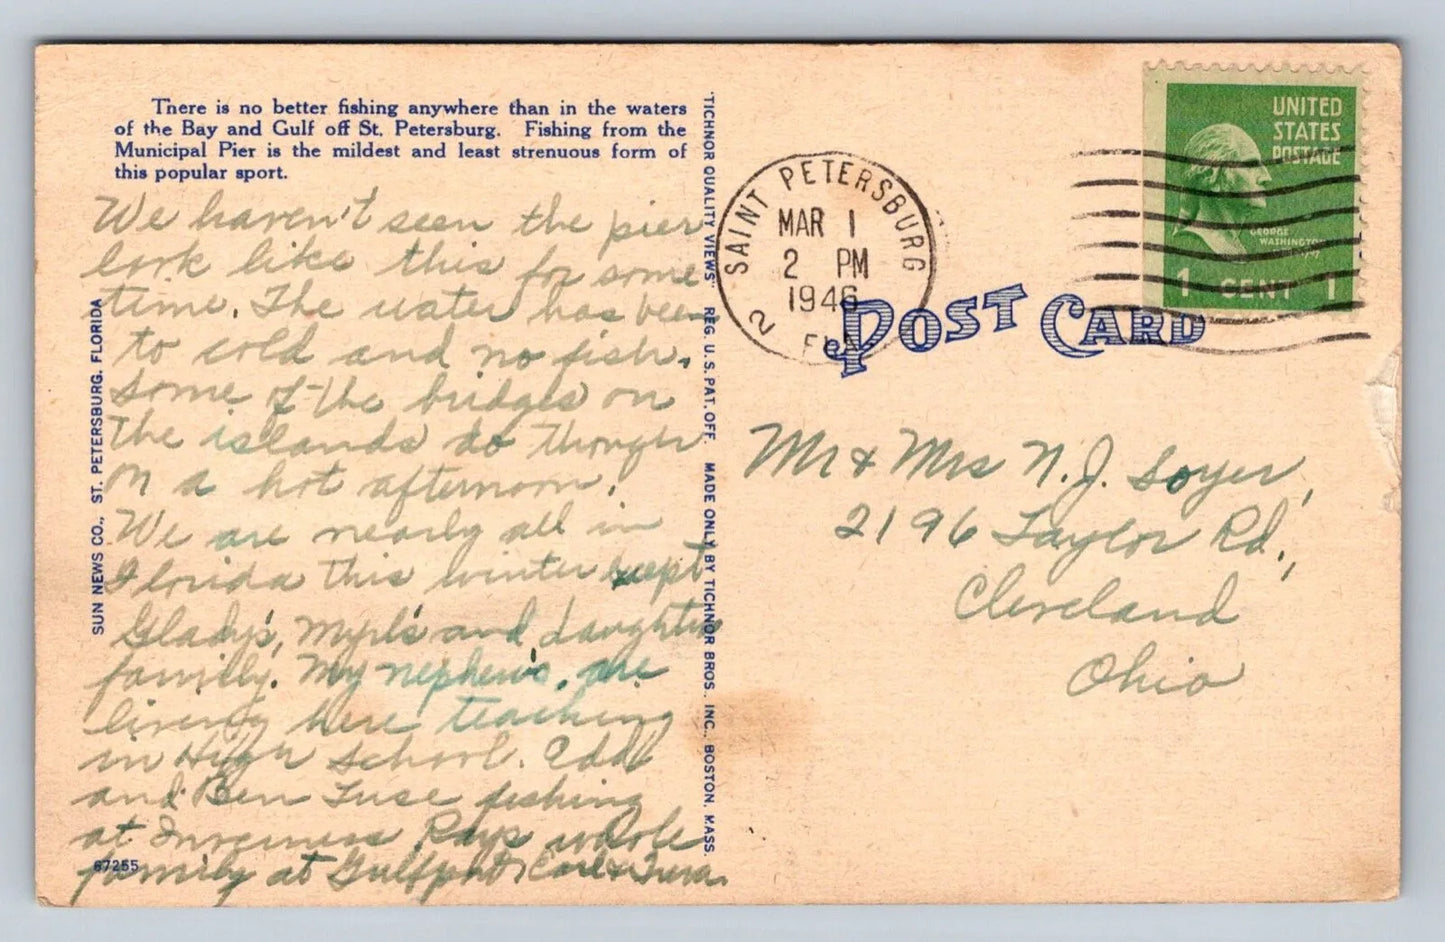 There is no better fishing anywhere than in the waters
of the Bay and Gulf off St. Petersburg. Fishing from the
Municipal Pier is the mildest and least strenuous form of
this popular sport.
We haven't seen the pier
look like this for some
time. The water has been
to cold and no fish.
Some of the bridges on
the islands do though
on a hot afternoon.
We are nearly all in
Florida this winter except
Glady's, Myrl's and daughter
family. My nephew's are
living here teaching
in High School. Edd
and Ben Fuse fishing
at Inverness Rays whole
family at Gulfport Carl &
67255
SUN NEWS CO., ST. PETERSBURG, FLORIDA
"TICHNOR QUALITY VIEWS" REG. U. S. PAT. OFF. MADE ONLY BY TICHNOR BROS. INC., BOSTON, MASS.
SAINT PETERSBURG
MAR 1
2 PM
1946
2 FLA
UNITED
STATES
POSTAGE
GEORGE
WASHINGTON
1 CENT 1
POST CARD
Mr & Mrs N. J. Soyer,
2196 Taylor Rd.,
Cleveland
Ohio